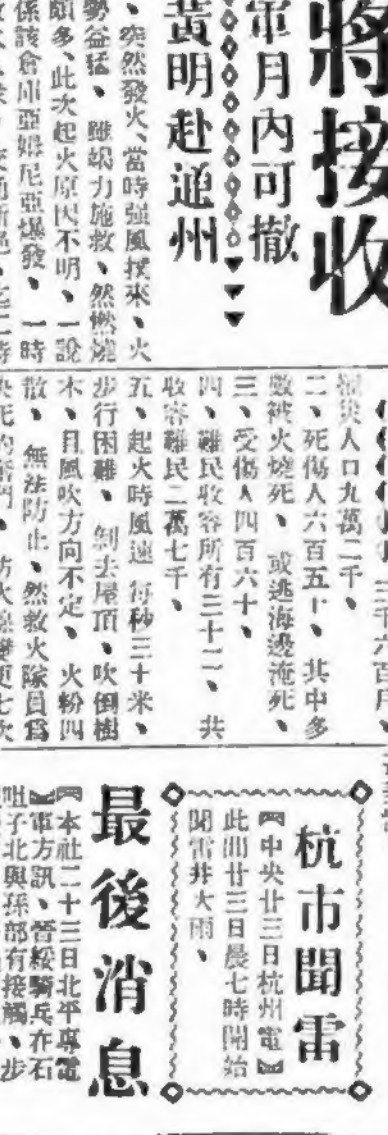 將接收
軍月內可撤
黃明赴通州
、突然發火、當時强風撲來、火
勢益猛、雖竭力施救、然燃燒
頗多、此次起火原因不明、一說
係該倉庫亞姆尼亞爆發、一時
三千六百戶、
災人口九萬二千、
二、死傷人六百五十、其中多
數被火燒死、或逃海邊淹死、
三、受傷人四百六十、
四、難民收容所有三十二、共
收容難民二萬七千、
五、起火時風速每秒三十米、
步行困難、剝去屋頂、吹倒樹
木、且風吹方向不定、火粉四
散、無法防止、然救火隊員爲
杭市聞雷
【中央廿三日杭州電】
此間廿三日晨七時開始
聞雷幷大雨、
最後消息
【本社二十三日北平專電
】軍方訊、晉綏騎兵在石
咀子北與孫部有接觸、步